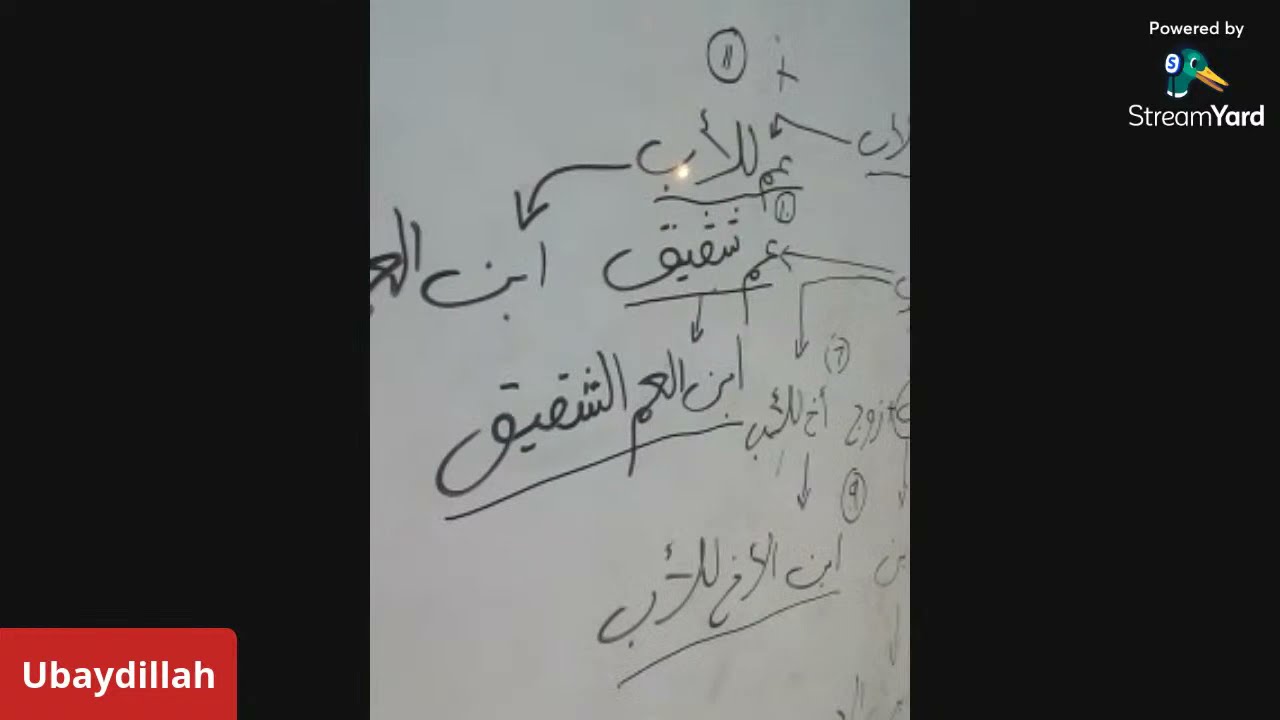 Powered by
StreamYard
11
عم للأب
10
عم شقيق
ابن
ابن العم الشقيق
7
زوج أخ للأب
9
ابن الأخ للأب
Ubaydillah